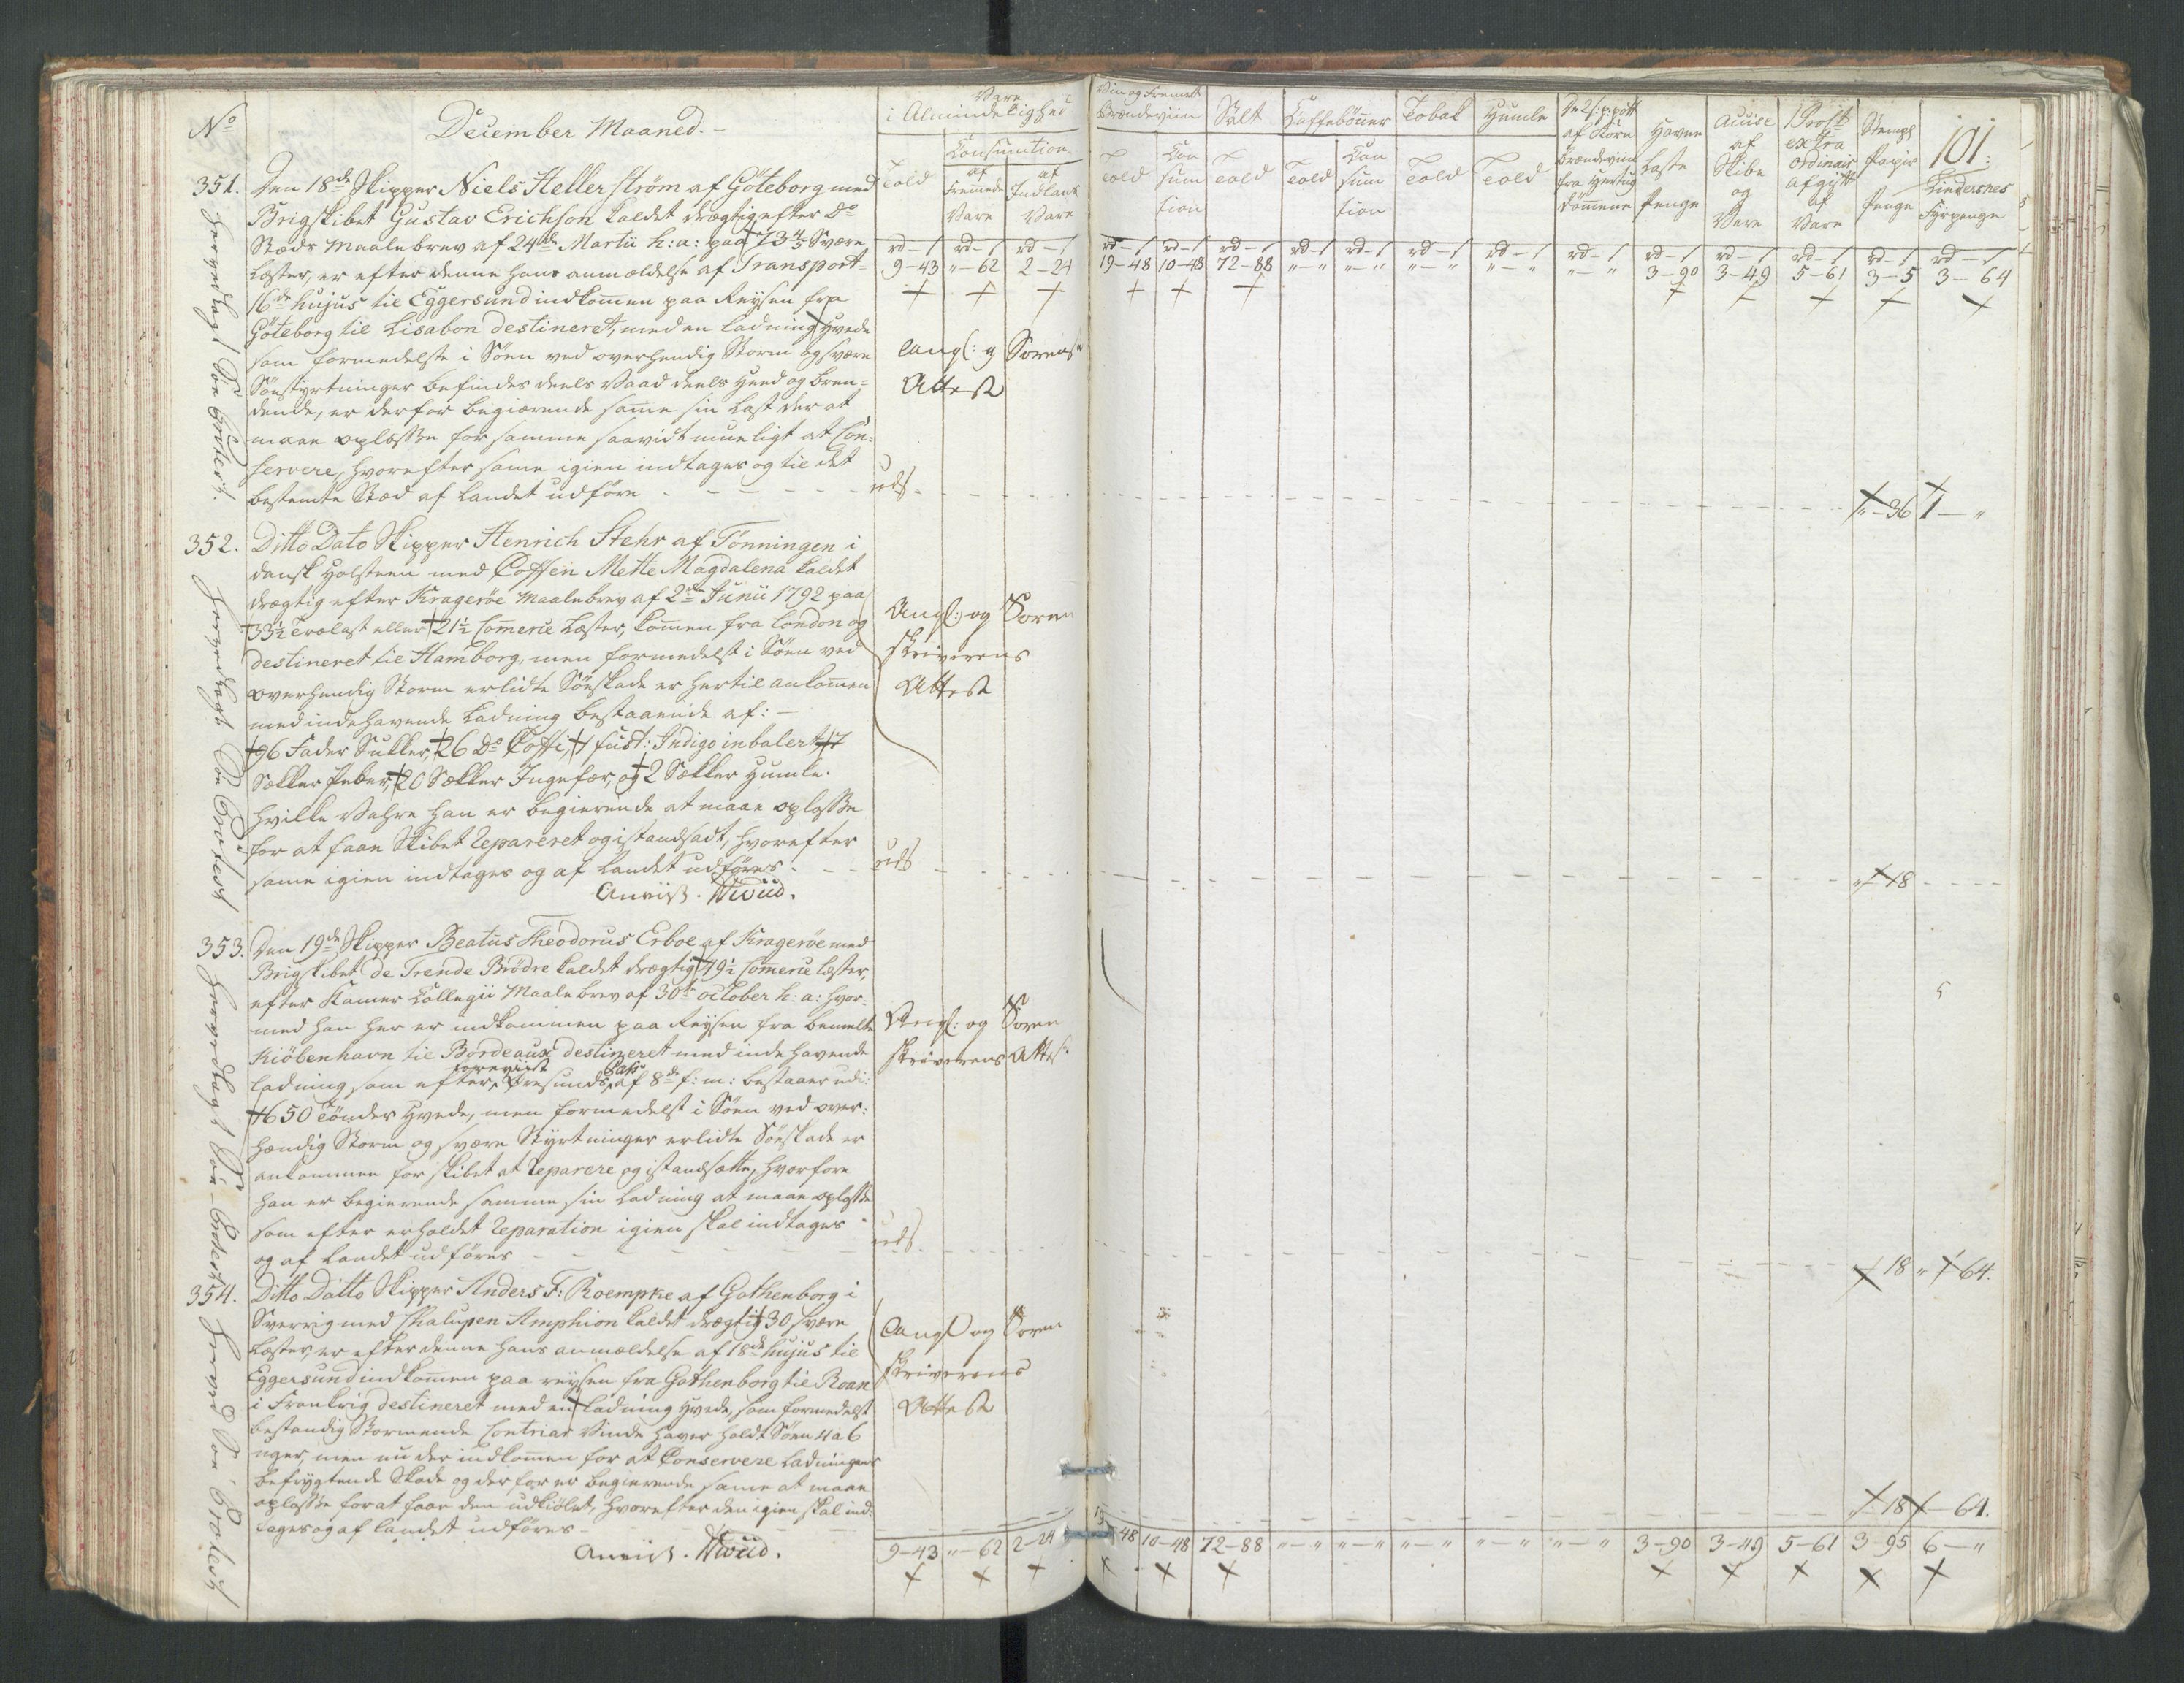 No
December Maaned.-
351. Den 18de Skipper Niels Hellerström af Göteborg med
Brigskibet Gustav Erichson kaldet drægtig efter Do
Stæds Maalebrev af 24de Martii h: a: paa 73 4/5 Svære
Læster, er efter denne hans anmældelse af Transport
16de hujus til Eggersund indkom̄en paa Reysen fra
Göteborg til Lisabon destineret, med en ladning Hvede
som formedelste i Söen ved overhendig Storm og svære
Söestyrtninger befindes deels Vaad deels Heed og bren=
dende, er derfor begiærende sam̄e sin Last der at
maae oplosse for samme saavidt mueligt at Con:
servere, hvorefter sam̄e igien indtages og til det
bestemte Stæd af Landet udföre
herved lagt Söe Protest.
352. Ditto Dato Skipper Henrich Stehr af Tönningen i
dansk Holsteen med Coffen Mette Magdalena kaldet
drægtig efter Kragerøe Maalebrev af 2de Junii 1792 paa
33½ Trælast eller 21½ Com̄erce Læster, kom̄en fra London og
destineret til Hamborg, men formedelst i Söen ved
overhendig Storm erlidte Söeskade er hertil ankom̄en
med indehavende Ladning bestaaende af: -
96 Fader Sukker, 26 Do Coffi, 1 fust: Indigo inbalert 7
Sækker Peber, 20 Sækker Ingefær, og 2 Sækker Humle.
hvilke Vahre han er begierende at maae oplosse
for at faae Skibet Repareret og istandsadt, hvorefter
sam̄e igien indtages og af Landet udföres
Anviist. Wiid.
herved lagt Söe Protest
353. Den 19de Skipper Beatus Theodorus Erboe af Kragerøe med
Brigskibet de Trende Brödre kaldet drægtig 49½ Com̄erce læster,
efter Kamer Collegii Maalebrev af 30te October h: a: hvor:
med han her er indkommen paa Reysen fra bemelte
Kiöbenhavn til Bordeaux destineret med indehavende
ladning som efter foreviist Öresunds Pass af 8de f: m: bestaaer udi:
1650 Tönder Hvede, men formedelst i Söen ved over:
hændig Storm og svære Styrtninger erlidte Söeskade er
ankommen for skibet at Reparere og istandsætte, hvorfore
han er begierende samme sin Ladning at maae oplosse
som efter erholdet Reparation igien skal indtages
og af Landet udföres
herved lagt Söe-Protest.
354. Ditto Datto Skipper Anders F: Roempke af Gothenborg i
Sverrig med Chalupen Amphion kaldet drægtig 30 svære
Læster, er efter denne hans anmældelse af 18de hujus til
Eggersund indkom̄en paa reysen fra Gothenborg til Roan
i Frankrig destineret med en ladning Hvede, som formedelst
bestandig Stormende Contrair Vinde haver holdt Söen 4 a 6
uger, men nu der indkom̄en for at Conservere Ladningens
befrygtende Skade og derfor er begierende sam̄e at maae
oplosse for at faae den udkiölet, hvorefter den igien skal ind:
tages og af landet udföres
Anviist. Wiid.
herved Söe Protest
Vare
i Almindelighed
Told
Consumtion
af Fremmede Vare
af Indlandsk Vare
rd - s rd - s rd - s
9-43 "-62 2-24
Angl: og Sorensk
Attest
uds
Angl: og Soren
skriverens
Attest
uds
Angl: og Soren
skriverens Attest
uds
Angl og Soren
skriverens
Attest
9-43 "-62 2-24
Viin og Fremet
Brændeviin Salt Caffebönner Tobak Humle
Told Con sum tion Told Told Con sum tion Told Told
De 2 s: p: pott
af Korn
brændeviin
fra Hertug
dömmene
Havne
Laste
penge
Accise
af
Skibe
og
Vare
1 Prost
extra
ordinair
Afgift
af
Vare
Stempl
Papir
penge
101:
Lindersnes
Fyrpenge
19-48 10-48 72-88 "-" "-" "-" "-" "-" 3-90 3-49 5-61 3-5 3-64
"-36 1-"
"-18
-18 "-64.
-18 -64.
19 48 10-48 72-88 "-" "-" "-" "-" "-" 3-90 3-49 5-61 3-95 6-"